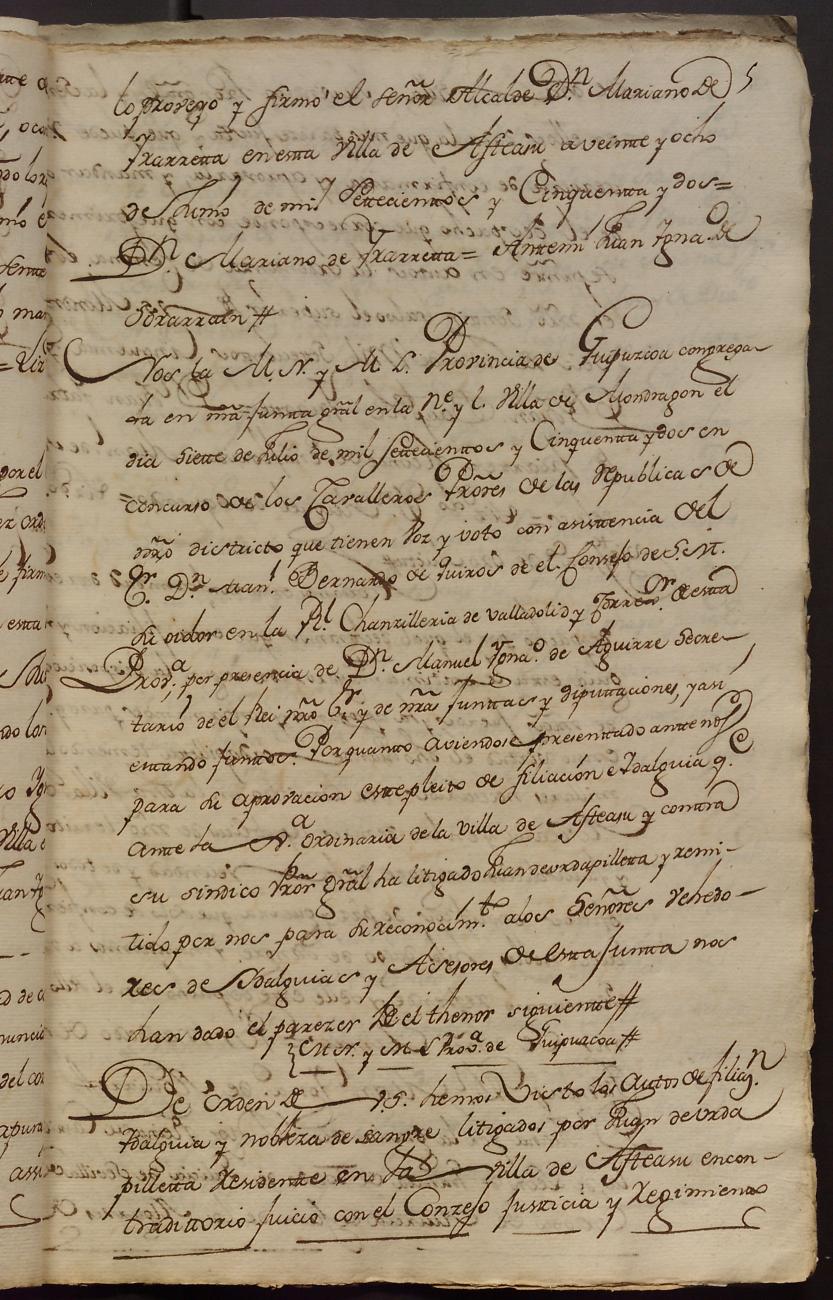 lo proveyó y firmó el señor Alcalde Dn. Mariano de 5
Yrarreta en esta Villa de Asteasu a veinte y ocho
de Junio de mil Settecienttos y Cinquentta y dos=
Dn. Mariano de Yrarretta= Antemi Juan Ygna.º de
Sorarrain #
Nos la M. N. y M. L. Provincia de Guipuzcoa congrega-
da en nrã Juntta grãl en la N.e y L. Villa de Mondragon el
dia siette de Julio de mil settecienttos y Cinquentta y dos en
concurso de los Cavalleros Prõres de las Republicas de
nrõ districto que tienen Voz y voto con asistencia del
Sr. Dn. Man.l Bernardo de Quiros de el Consejo de S. M.
su oidor en la Rl. Chanzilleria de Valladolid y Corre.or de esta
Prov.a, por presencia de Dn. Manuel Ygna.º de Aguirre Secre-
tario de el Rei nrõ Sr. y de nrãs Junttas y diputtaciones, y asi
estando junttos. Por quantto aviendose presenttado antte nos
para su aprovacion este pleito de filiación e Ydalguia q.e
ante la Jª. ordinaria de la villa de Asteasu y contra
su sindico Prõr grãl ha litigado Juan de urdapilletta y remi-
tido por nos para su reconocim.to a los Señores Vehedo-
res de Ydalguias y Asesores de esta Juntta nos
han dado el parezer de el thenor siguientte #
M. N. y M. L. Prov.a de Guipuzcoa #
De orden de V.S. hemos Visto los autos de filiaz.n
Ydalguia y nobleza de sangre litigados por Juan de urda
pilletta Residente en la Villa de Asteasu en con-
tradittorio juicio con el Conzejo Justicia y Regimiento